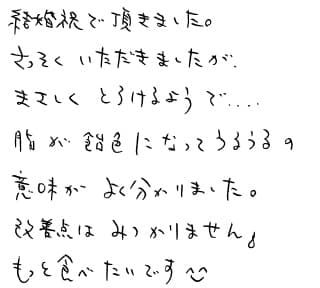 結婚祝で頂きました。
さっそくいただきましたが、
まさしくとろけるようで....
脂が飴色になってうるうるの
意味がよく分かりました。
改善点はみつかりません。
もっと食べたいです